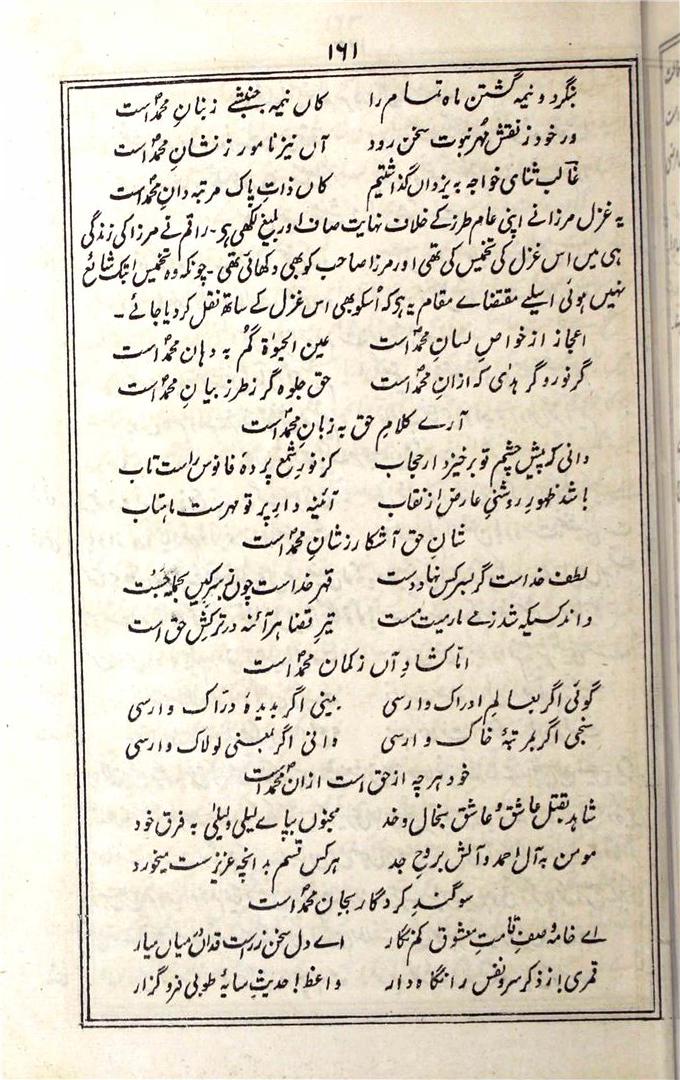 ۱۶۱
بنگرد و نیمہ گشتن ماہ تمام را کاں نیمہ جنبشے زبنانِ محمدؐ است
ور خود ز نقشِ مُہرِ نبوت سخن رود آں نیز نامور ز نشانِ محمدؐ است
غالب ثنای خواجہ بہ یزداں گذاشتیم کاں ذاتِ پاک مرتبہ دانِ محمدؐ است
یہ غزل مرزا نے اپنی عام طرز کے خلاف نہایت صاف اور بلیغ لکھی ہی۔ راقم نے مرزا کی زندگی
ہی میں اس غزل کی تخمیس کی تھی اور مرزا صاحب کو بھی دکھائی تھی۔ چونکہ وہ تخمیس ابتک شائع
نہیں ہوئی اسلیے مقتضاے مقام یہ ہو کہ اُسکو بھی اس غزل کے ساتھ نقل کر دیا جائے۔
اعجاز از خواصِ لسانِ محمدؐ است عین الحیوٰۃ گم بہ دہانِ محمدؐ است
گر نور و گر ہدٰی کہ ازانِ محمدؐ است حق جلوہ گر ز طرزِ بیانِ محمدؐ است
آرے کلامِ حق بہ زبانِ محمدؐ است
دانی کہ پیش چشم تو برخیزد ار حجاب کز نورِ شمع پردۂ فانوس راست تاب
باشد ظہورِ روشنیِ عارض از نقاب آئینہ دارِ پرتوِ مہرست ماہتاب
شانِ حق آشکار ز شانِ محمدؐ است
لطف خداست گر بسر کس نہاد دست قہر خداست چوں بسر کیں بجملہ جست
داند کسیکہ شد ز مے مارمیت مست تیرِ قضا ہر آئنہ در ترکشِ حق است
امّا کشادِ آں ز کمانِ محمدؐ است
گوئی اگر بعالمِ ادراک وارسی بینی اگر بدیدۂ درّاک وارسی
سنجی اگر بمرتبۂ خاک وارسی دانی اگر بمعنیِ لولاک وارسی
خود ہرچہ از حق است ازانِ محمدؐ است
شاہد بقتلِ عاشق و عاشق بخال و خد مجنوں بپاے لیلی و لیلیٰ بہ فرق خود
مومن بہ آل احمد و آلش بروحِ جد ہر کس قسم بدانچہ عزیزست میخورد
سوگندِ کردگار بجانِ محمدؐ است
اے خامہ وصفِ قامتِ معشوق کم نگار اے دل سخن ز راستِ قداں در میاں میار
قمری! از ذکرِ سرو نفس را نگاہ دار واعظ! حدیثِ سایۂ طوبیٰ فرو گزار